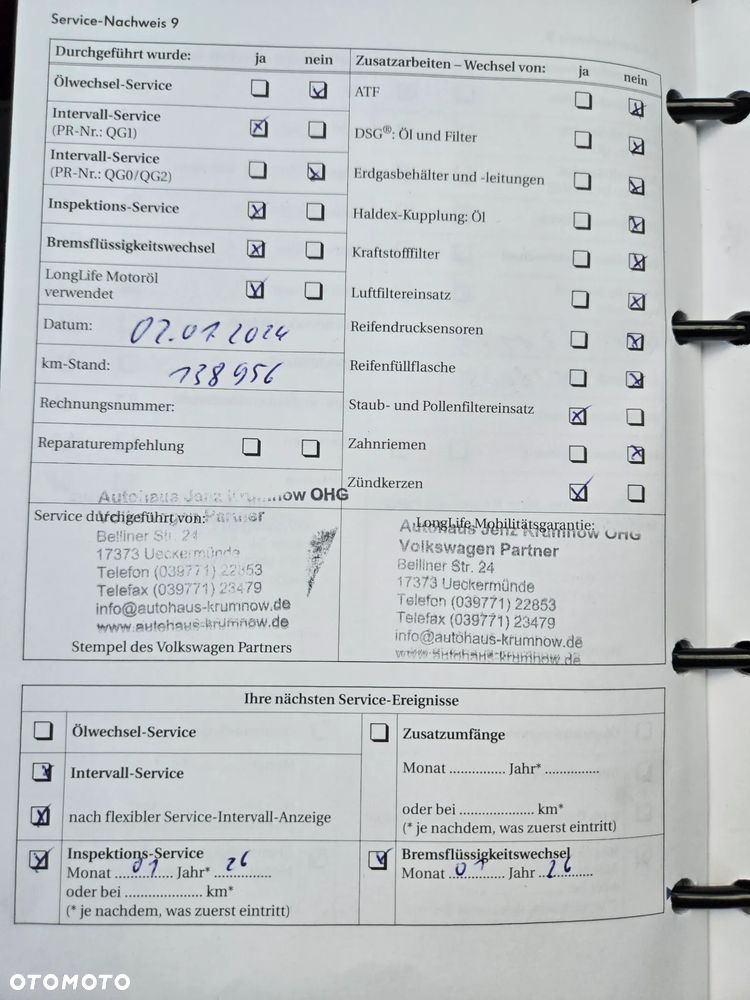 Service-Nachweis 9
Durchgeführt wurde: ja nein
Ölwechsel-Service
Intervall-Service
(PR-Nr.: QG1)
Intervall-Service
(PR-Nr.: QG0/QG2)
Inspektions-Service
Bremsflüssigkeitswechsel
LongLife Motoröl
verwendet
Datum: 02.01.2024
km-Stand: 138956
Rechnungsnummer:
Reparaturempfehlung
Zusatzarbeiten – Wechsel von: ja nein
ATF
DSG®: Öl und Filter
Erdgasbehälter und -leitungen
Haldex-Kupplung: Öl
Kraftstofffilter
Luftfiltereinsatz
Reifendrucksensoren
Reifenfüllflasche
Staub- und Pollenfiltereinsatz
Zahnriemen
Zündkerzen
Autohaus Jenz Krumnow OHG
Service durchgeführt von:
Belliner Str. 24
17373 Ueckermünde
Telefon (039771) 22853
Telefax (039771) 23479
info@autohaus-krumnow.de
www.autohaus-krumnow.de
Stempel des Volkswagen Partners
LongLife Mobilitätsgarantie:
Autohaus Jenz Krumnow OHG
Volkswagen Partner
Belliner Str. 24
17373 Ueckermünde
Telefon (039771) 22853
Telefax (039771) 23479
info@autohaus-krumnow.de
www.autohaus-krumnow.de
Ihre nächsten Service-Ereignisse
Ölwechsel-Service
Intervall-Service
nach flexibler Service-Intervall-Anzeige
Inspektions-Service
Monat 01 Jahr* 26
oder bei .................... km*
(* je nachdem, was zuerst eintritt)
Zusatzumfänge
Monat .............. Jahr* ..............
oder bei .................... km*
(* je nachdem, was zuerst eintritt)
Bremsflüssigkeitswechsel
Monat 01 Jahr 26
OTOMOTO